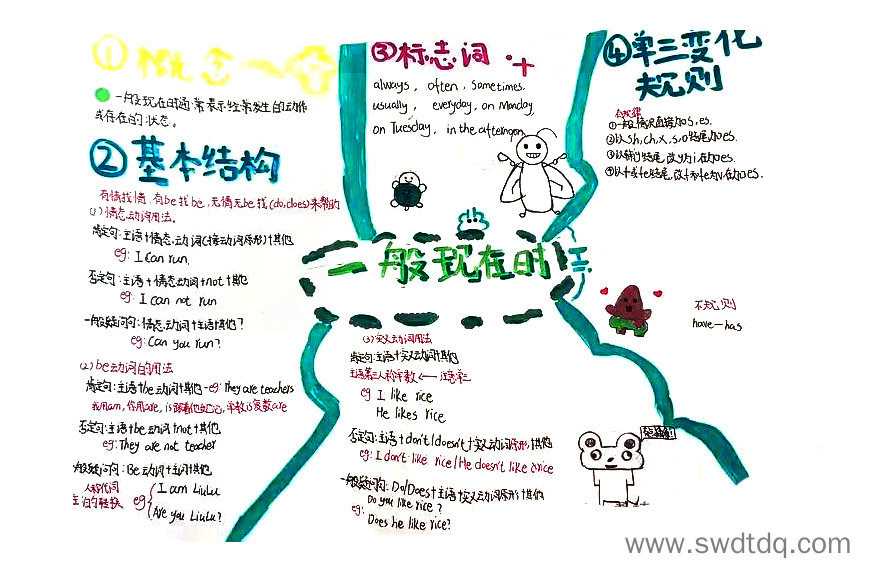 ① 概念
一般现在时通常表示经常发生的动作
或存在的状态。
② 基本结构
有情找情,有be找be,无情无be找(do,does)来帮助
(1)情态动词用法。
肯定句:主语+情态动词(+接动词原形)+其他
eg: I can run.
否定句:主语+情态动词+not+其他
eg: I can not run
一般疑问句:情态动词+主语+其他?
eg: Can you run?
(2) be动词的用法
肯定句:主语+be动词+其他 eg: They are teachers
我用am,你用are,is跟着他她它,单数is复数are
否定句:主语+be动词+not+其他
eg: They are not teacher
一般疑问句:Be动词+主词+其他
人称代词
主语的转换
eg
I am LiuLu
Are you LiuLu?
③ 标志词
always, often, sometimes.
usually, everyday, on Monday
on Tuesday, in the afternoon
一般现在时
(3)实义动词用法
肯定句:主语+实义动词+其他
主语第三人称单数
eg I like rice
He likes rice
否定句:主语+don't/doesn't+实义动词原形+其他
eg: I don't like rice/He doesn't like rice
一般疑问句:Do/Does+主语+实义动词原形+其他
Do you like rice?
eg:
Does he like rice?
④ 单三变化
规则
有规律
①一般情况直接加s,es.
②以sh,ch,x,s,o结尾加es.
③以辅y结尾,改y为i在加es.
④以f或fe结尾,改f和fe为v在加es.
不规则
have-has
www.swdtdq.com